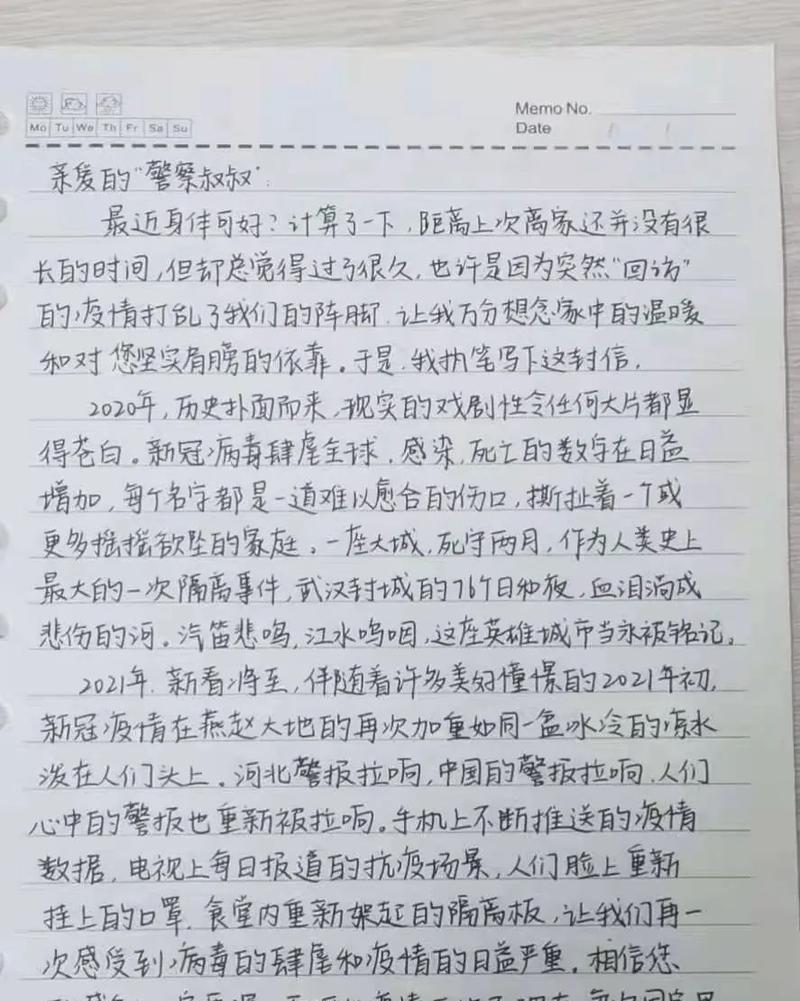 Memo No.
Mo Tu We Th Fr Sa Su
Date / /
亲爱的“警察叔叔”:
最近身体可好?计算了一下,距离上次离家还并没有很
长的时间,但却总觉得过了很久,也许是因为突然“回访”
的疫情打乱了我们的阵脚,让我万分想念家中的温暖
和对您坚实肩膀的依靠。于是,我执笔写下这封信。
2020年,历史扑面而来,现实的戏剧性令任何大片都显
得苍白。新冠病毒肆虐全球,感染,死亡的数字在日益
增加,每个名字都是一道难以愈合的伤口,撕扯着一个或
更多摇摇欲坠的家庭。一座大城,死守两月,作为人类史上
最大的一次隔离事件,武汉封城的76个日和夜,血泪淌成
悲伤的河。汽笛悲鸣,江水呜咽,这座英雄城市当永被铭记。
2021年,新春将至,伴随着许多美好憧憬的2021年初,
新冠疫情在燕赵大地的再次加重如同一盆冰冷的凉水
泼在人们头上。河北警报拉响,中国的警报拉响,人们
心中的警报也重新被拉响。手机上不断推送的疫情
数据,电视上每日报道的抗疫场景,人们脸上重新
挂上的口罩,食堂内重新架起的隔离板,让我们再一
次感受到病毒的肆虐和疫情的日益严重。相信您